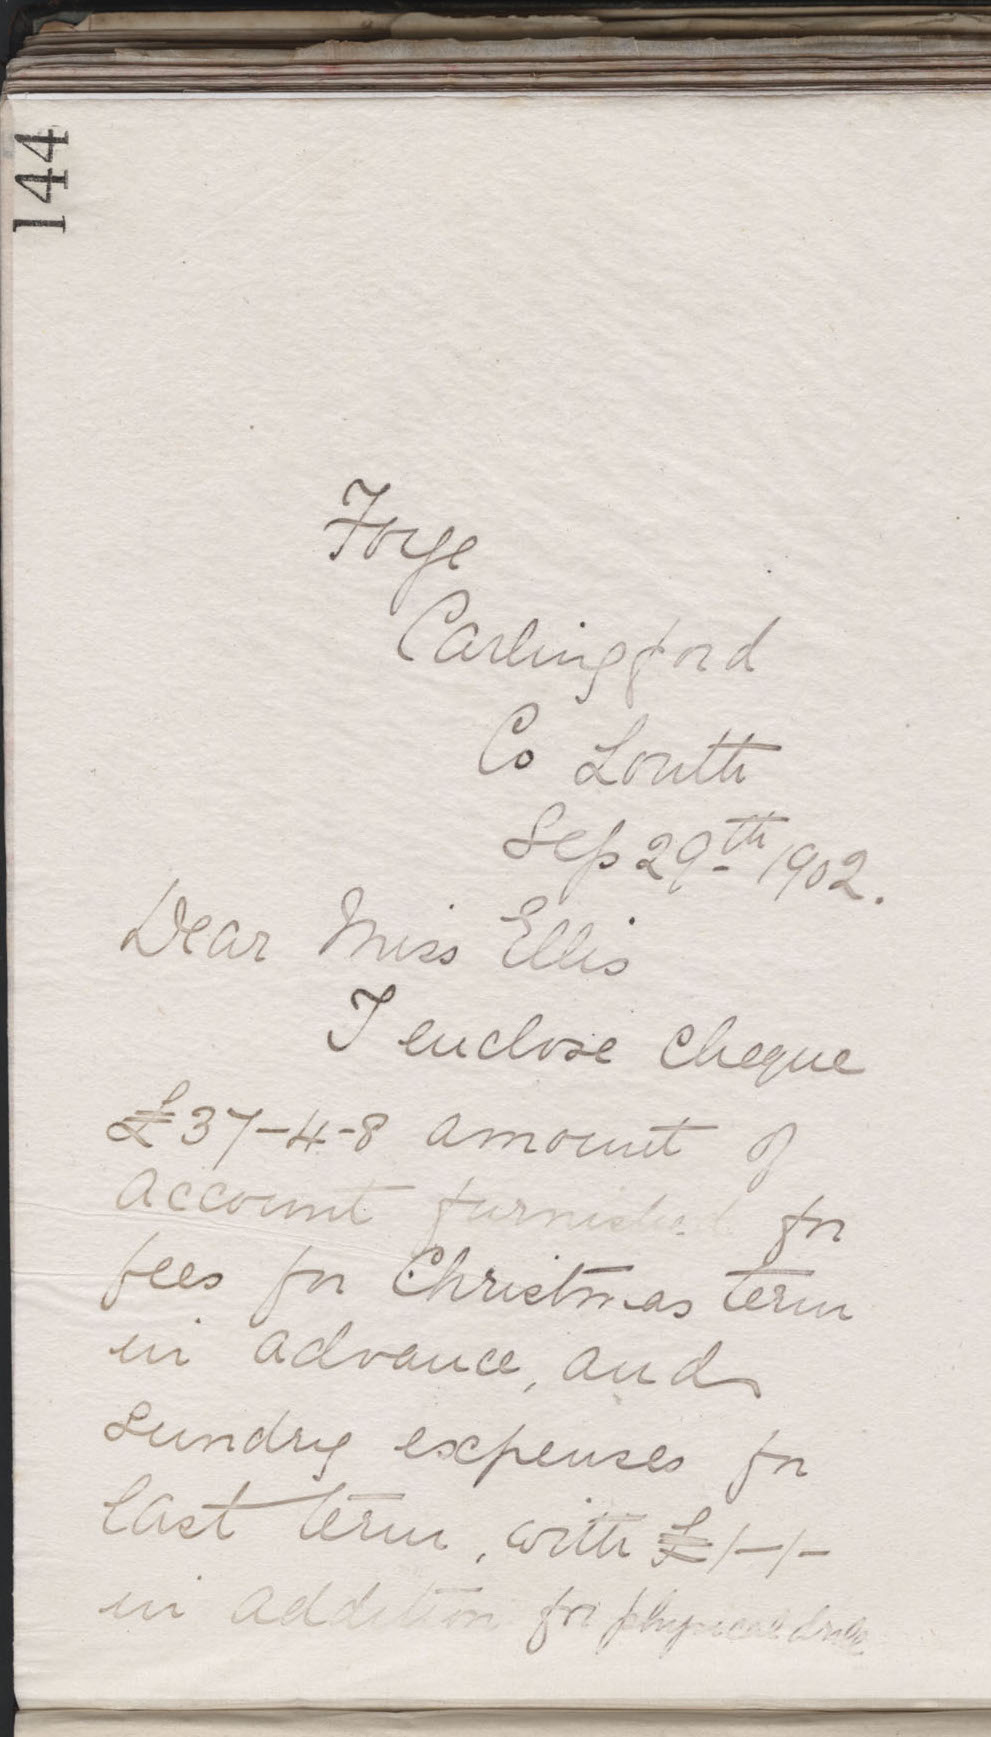 144
Forge
Carlingford
Co Louth
Sep 29th 1902.
Dear Miss Ellis
I enclose cheque
£37-4-8 amount of
account furnished for
fees for Christmas term
in advance, and
sundry expenses for
last term, with £1-1-
in addition for physical drill